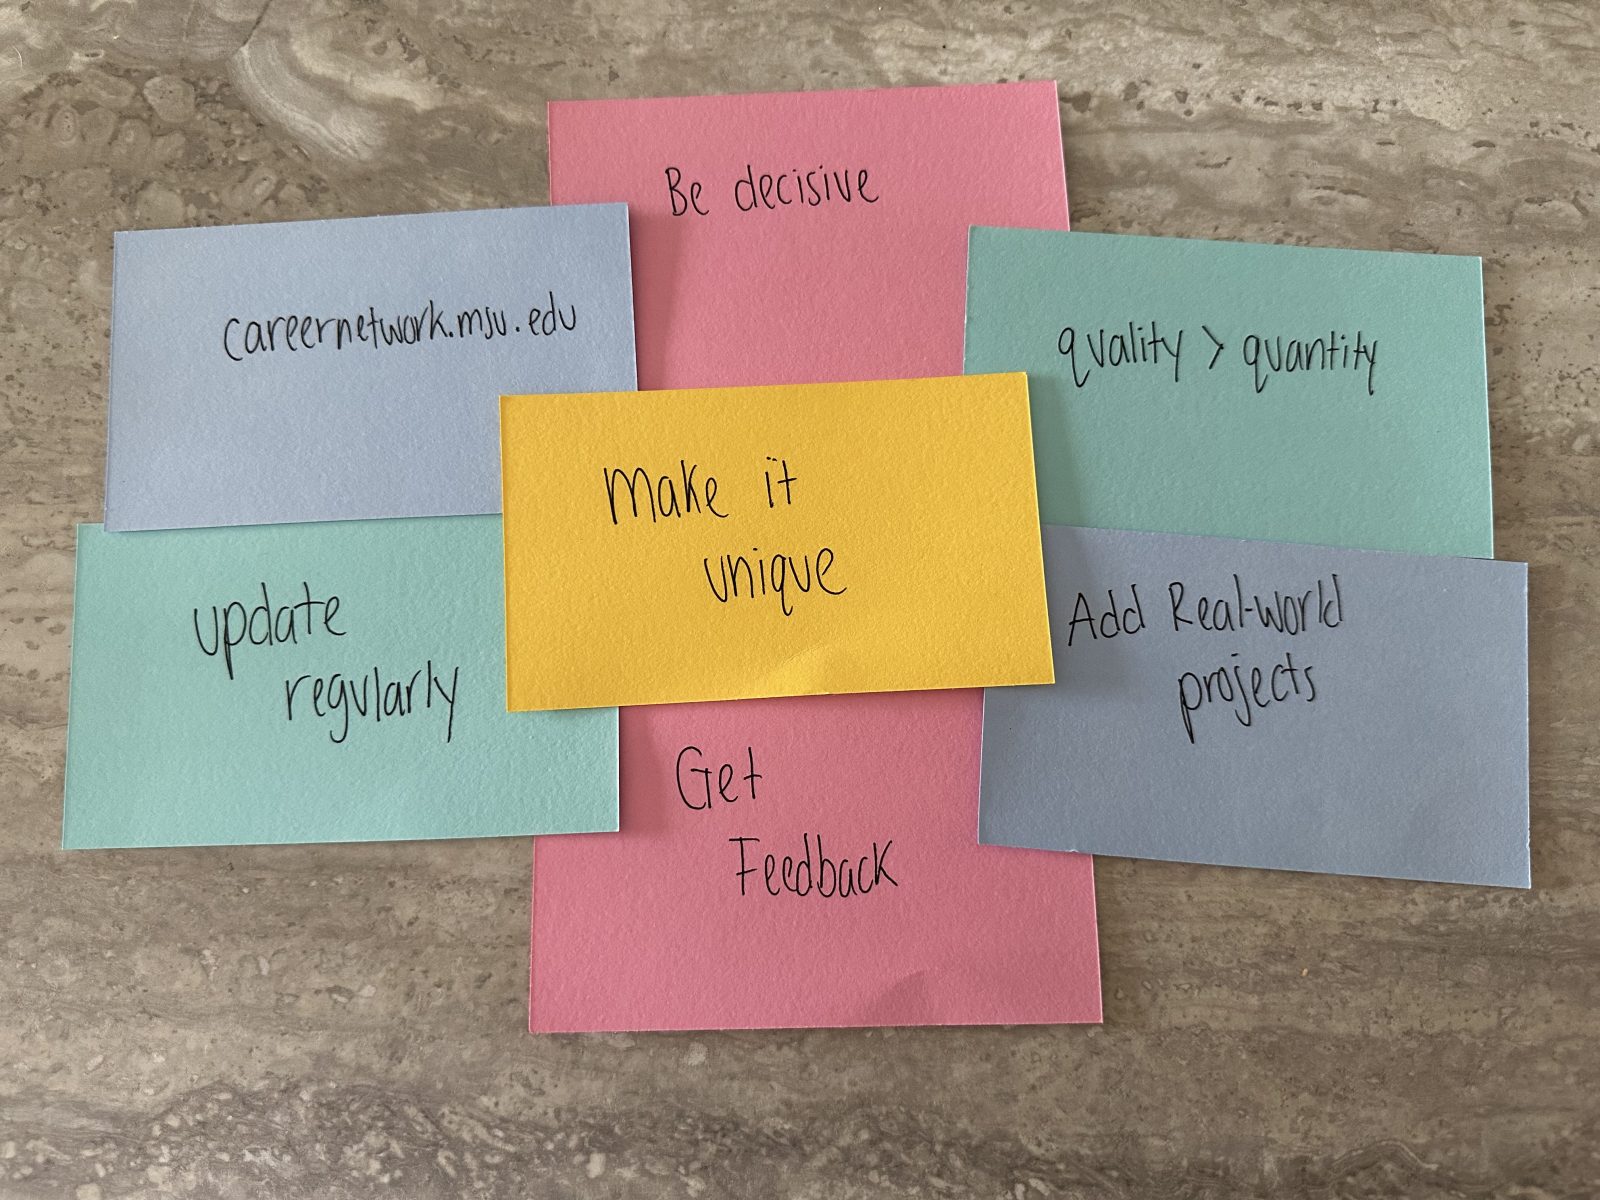 Be decisive
careernetwork.msu.edu
quality > quantity
Make it
unique
update
regularly
Add Real-world
projects
Get
Feedback